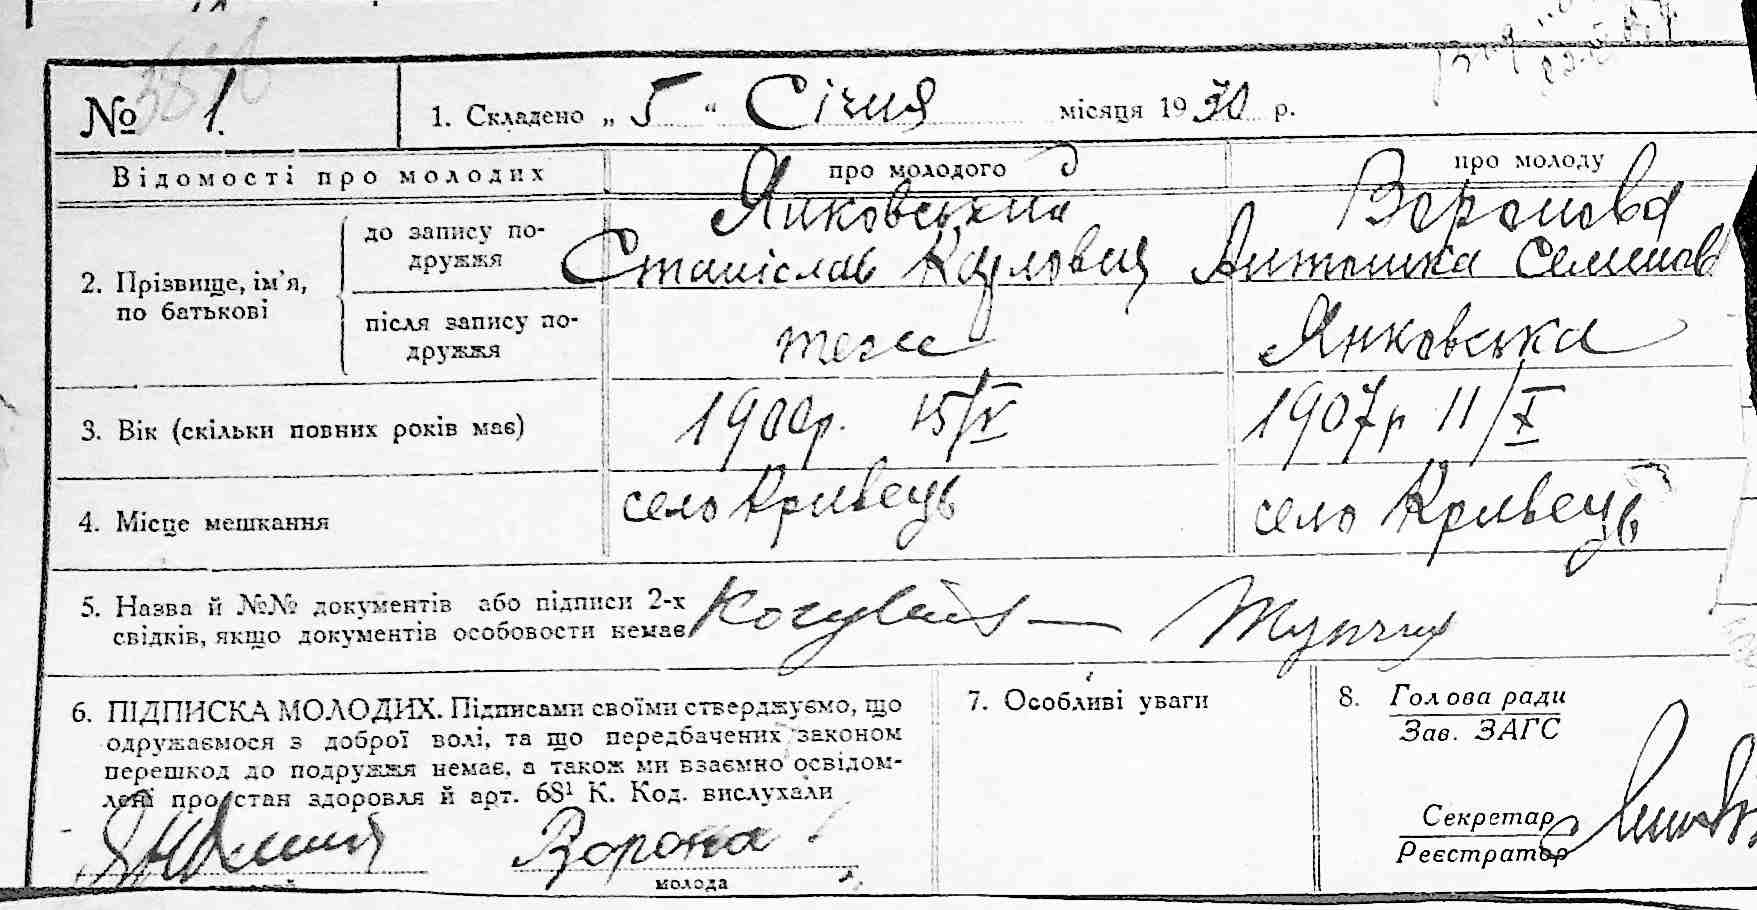 № 1. 1. Складено „ 5 “ Січня місяця 1930 р.
Відомості про молодих про молодого про молоду
2. Прізвище, ім’я, по батькові
до запису по-
дружжя
Янковський Воронова
Станіслав Карлович Антонина Семенов
після запису по-
дружжя
теж Янковська
3. Вік (скільки повних років має) 1900р. 15/IV 1907р 11/X
4. Місце мешкання село Кривець село Кривець
5. Назва й №№ документів або підписи 2-х
свідків, якщо документів особовости немає
6. ПІДПИСКА МОЛОДИХ. Підписами своїми стверджуємо, що
одружаємося з доброї волі, та що передбачених законом
перешкод до подружжя немає, а також ми взаємно освідом-
лені про стан здоровля й арт. 68¹ К. Код. вислухали
Ворона
молода
7. Особливі уваги
8. Голова ради
Зав. ЗАГС
Секретар
Реєстратор